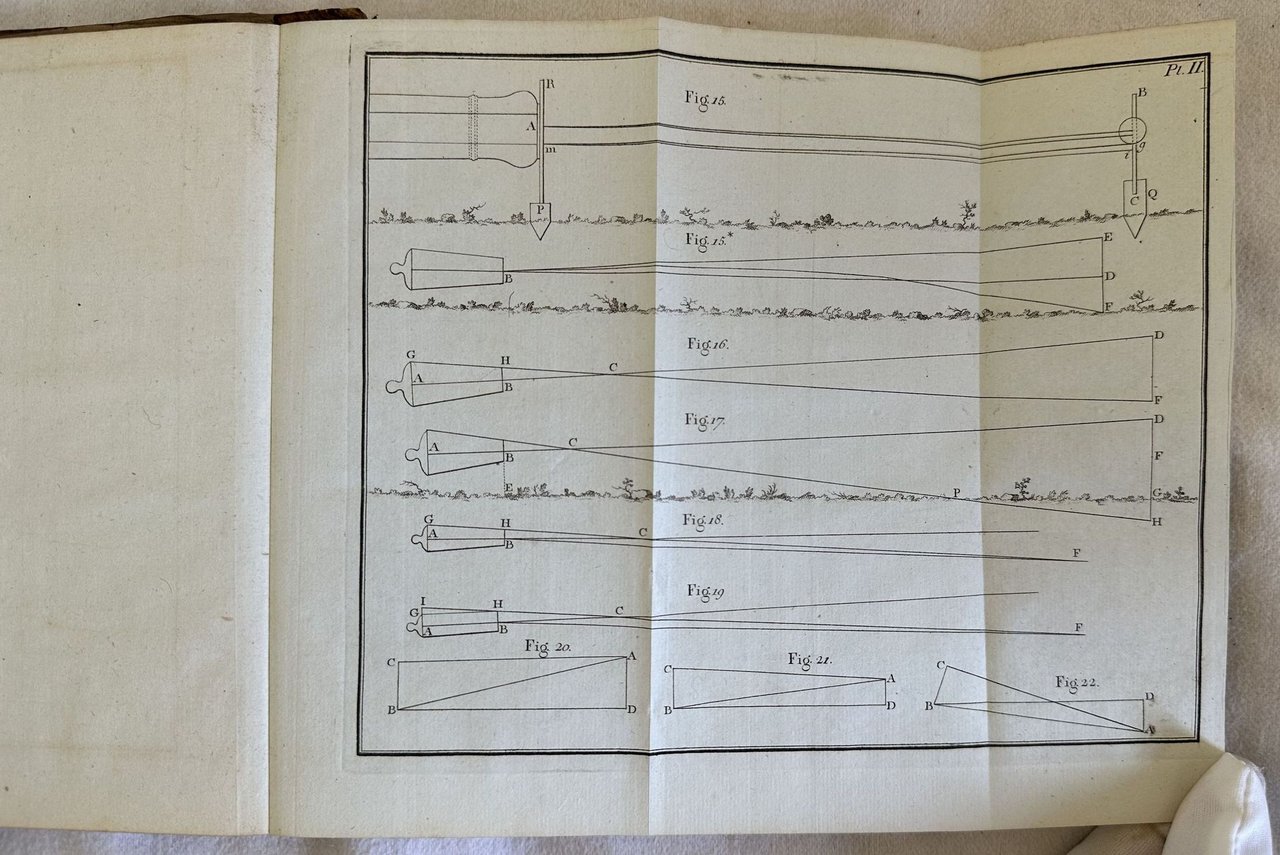 Pl. II.
Fig. 15.
R
B
A
m
i
g
P
C
Q
Fig. 15.*
E
B
D
F
Fig. 16.
G
H
C
D
A
B
F
Fig. 17.
D
C
A
B
F
E
P
G
H
Fig. 18.
G
H
A
C
B
F
Fig. 19
I
H
G
C
A
B
F
Fig. 20.
C
A
B
D
Fig. 21.
C
A
B
D
Fig. 22.
C
D
B
A